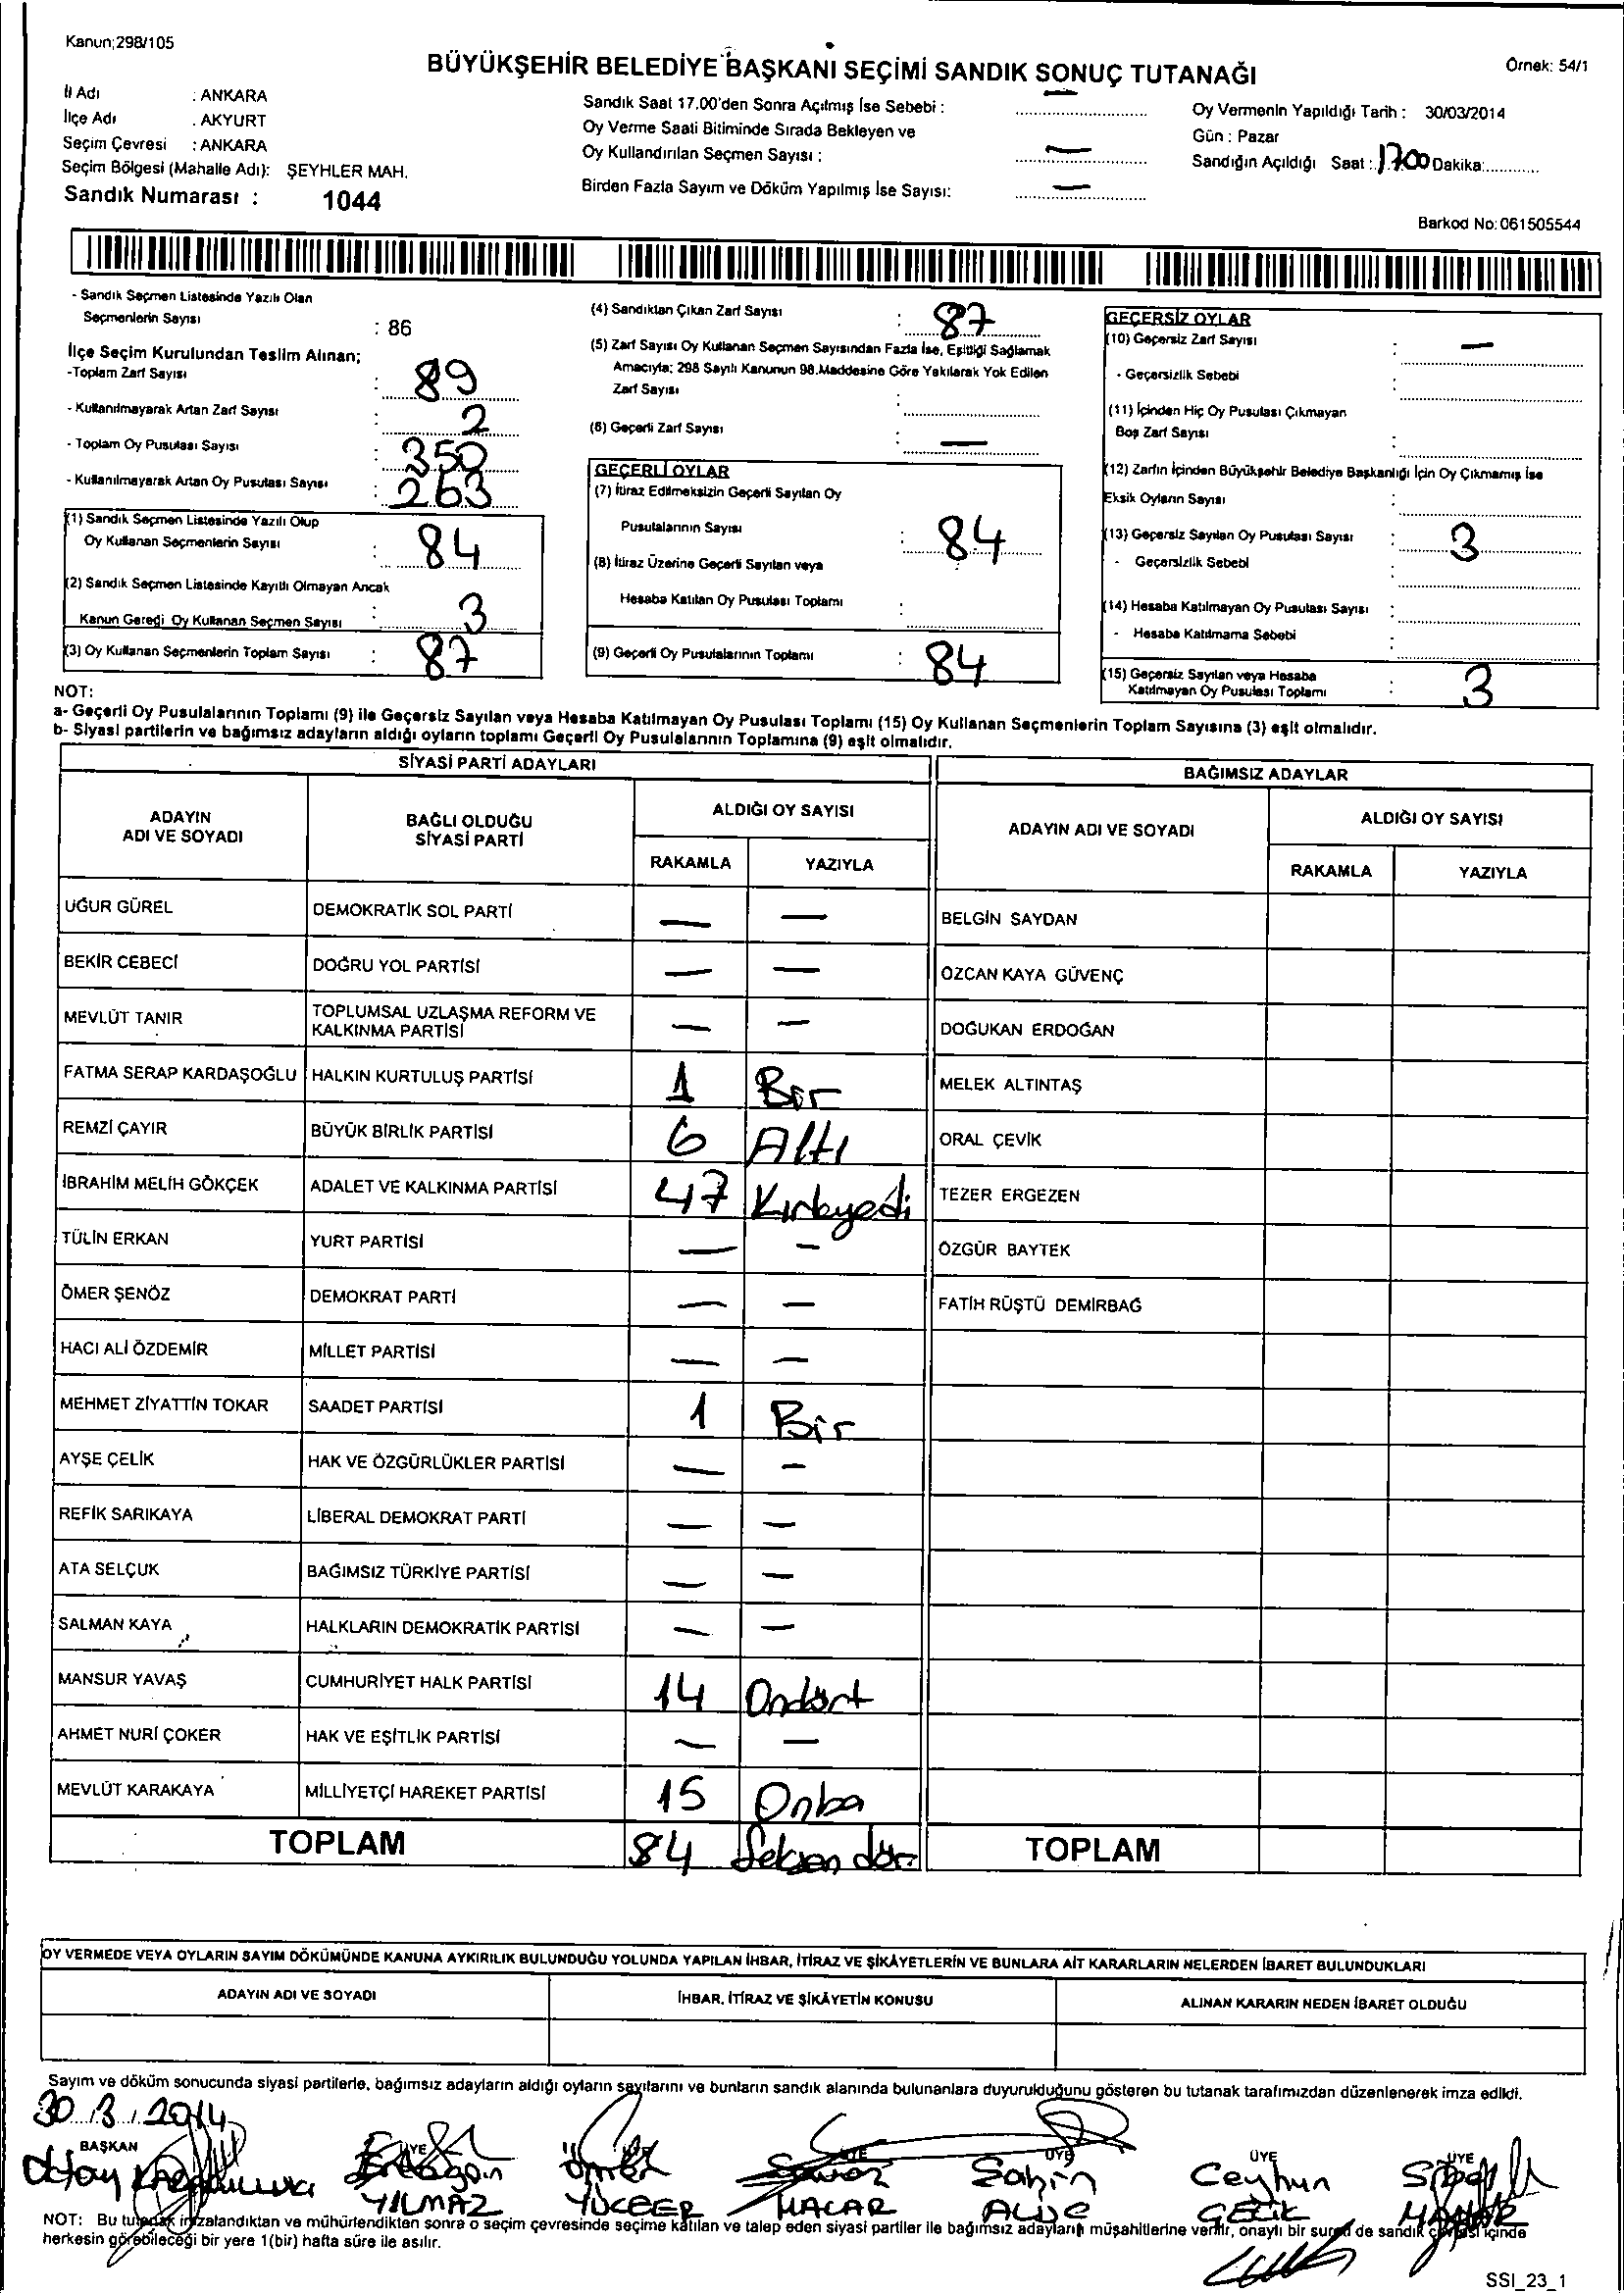 Kanun;298/105
BÜYÜKŞEHİR BELEDİYE BAŞKANI SEÇİMİ SANDIK SONUÇ TUTANAĞI
Örnek: 54/1
İl Adı : ANKARA
İlçe Adı : AKYURT
Seçim Çevresi : ANKARA
Seçim Bölgesi (Mahalle Adı): ŞEYHLER MAH.
Sandık Numarası : 1044
Sandık Saat 17.00'den Sonra Açılmış İse Sebebi : —
Oy Verme Saati Bitiminde Sırada Bekleyen ve
Oy Kullandırılan Seçmen Sayısı : —
Birden Fazla Sayım ve Döküm Yapılmış İse Sayısı: —
Oy Vermenin Yapıldığı Tarih : 30/03/2014
Gün : Pazar
Sandığın Açıldığı Saat : 17.00 Dakika:
Barkod No:061505544
- Sandık Seçmen Listesinde Yazılı Olan
Seçmenlerin Sayısı : 86
İlçe Seçim Kurulundan Teslim Alınan;
-Toplam Zarf Sayısı : 89
- Kullanılmayarak Artan Zarf Sayısı : 2
- Toplam Oy Pusulası Sayısı : 350
- Kullanılmayarak Artan Oy Pusulası Sayısı : 263
(1) Sandık Seçmen Listesinde Yazılı Olup
Oy Kullanan Seçmenlerin Sayısı : 84
(2) Sandık Seçmen Listesinde Kayıtlı Olmayan Ancak
Kanun Gereği Oy Kullanan Seçmen Sayısı : 3
(3) Oy Kullanan Seçmenlerin Toplam Sayısı : 87
(4) Sandıktan Çıkan Zarf Sayısı : 87
(5) Zarf Sayısı Oy Kullanan Seçmen Sayısından Fazla İse, Eşitliği Sağlamak
Amacıyla; 298 Sayılı Kanunun 98.Maddesine Göre Yakılarak Yok Edilen
Zarf Sayısı :
(6) Geçerli Zarf Sayısı : —
GEÇERLİ OYLAR
(7) İtiraz Edilmeksizin Geçerli Sayılan Oy
Pusulalarının Sayısı : 84
(8) İtiraz Üzerine Geçerli Sayılan veya
Hesaba Katılan Oy Pusulası Toplamı :
(9) Geçerli Oy Pusulalarının Toplamı : 84
GEÇERSİZ OYLAR
(10) Geçersiz Zarf Sayısı : —
- Geçersizlik Sebebi :
(11) İçinden Hiç Oy Pusulası Çıkmayan
Boş Zarf Sayısı :
(12) Zarfın İçinden Büyükşehir Belediye Başkanlığı İçin Oy Çıkmamış İse
Eksik Oyların Sayısı :
(13) Geçersiz Sayılan Oy Pusulası Sayısı : 3
- Geçersizlik Sebebi :
(14) Hesaba Katılmayan Oy Pusulası Sayısı :
- Hesaba Katılmama Sebebi :
(15) Geçersiz Sayılan veya Hesaba
Katılmayan Oy Pusulası Toplamı : 3
NOT:
a- Geçerli Oy Pusulalarının Toplamı (9) ile Geçersiz Sayılan veya Hesaba Katılmayan Oy Pusulası Toplamı (15) Oy Kullanan Seçmenlerin Toplam Sayısına (3) eşit olmalıdır.
b- Siyasi partilerin ve bağımsız adayların aldığı oyların toplamı Geçerli Oy Pusulalarının Toplamına (9) eşit olmalıdır.
SİYASİ PARTİ ADAYLARI
ADAYIN ADI VE SOYADI BAĞLI OLDUĞU SİYASİ PARTİ ALDIĞI OY SAYISI
RAKAMLA YAZIYLA
UĞUR GÜREL DEMOKRATİK SOL PARTİ — —
BEKİR CEBECİ DOĞRU YOL PARTİSİ — —
MEVLÜT TANIR TOPLUMSAL UZLAŞMA REFORM VE KALKINMA PARTİSİ — —
FATMA SERAP KARDAŞOĞLU HALKIN KURTULUŞ PARTİSİ 1 Bir
REMZİ ÇAYIR BÜYÜK BİRLİK PARTİSİ 6 Altı
İBRAHİM MELİH GÖKÇEK ADALET VE KALKINMA PARTİSİ 47 Kırkyedi
TÜLİN ERKAN YURT PARTİSİ — —
ÖMER ŞENÖZ DEMOKRAT PARTİ — —
HACI ALİ ÖZDEMİR MİLLET PARTİSİ — —
MEHMET ZİYATTİN TOKAR SAADET PARTİSİ 1 Bir
AYŞE ÇELİK HAK VE ÖZGÜRLÜKLER PARTİSİ — —
REFİK SARIKAYA LİBERAL DEMOKRAT PARTİ — —
ATA SELÇUK BAĞIMSIZ TÜRKİYE PARTİSİ — —
SALMAN KAYA HALKLARIN DEMOKRATİK PARTİSİ — —
MANSUR YAVAŞ CUMHURİYET HALK PARTİSİ 14 Ondört
AHMET NURİ ÇOKER HAK VE EŞİTLİK PARTİSİ — —
MEVLÜT KARAKAYA MİLLİYETÇİ HAREKET PARTİSİ 15 Onba
TOPLAM 84 Seksen dör
BAĞIMSIZ ADAYLAR
ADAYIN ADI VE SOYADI ALDIĞI OY SAYISI
RAKAMLA YAZIYLA
BELGİN SAYDAN
ÖZCAN KAYA GÜVENÇ
DOĞUKAN ERDOĞAN
MELEK ALTINTAŞ
ORAL ÇEVİK
TEZER ERGEZEN
ÖZGÜR BAYTEK
FATİH RÜŞTÜ DEMİRBAĞ
TOPLAM
OY VERMEDE VEYA OYLARIN SAYIM DÖKÜMÜNDE KANUNA AYKIRILIK BULUNDUĞU YOLUNDA YAPILAN İHBAR, İTİRAZ VE ŞİKÂYETLERİN VE BUNLARA AİT KARARLARIN NELERDEN İBARET BULUNDUKLARI
ADAYIN ADI VE SOYADI İHBAR, İTİRAZ VE ŞİKÂYETİN KONUSU ALINAN KARARIN NEDEN İBARET OLDUĞU
Sayım ve döküm sonucunda siyasi partilerle, bağımsız adayların aldığı oyların sayılarını ve bunların sandık alanında bulunanlara duyurulduğunu gösteren bu tutanak tarafımızdan düzenlenerek imza edildi.
30.3.2014
BAŞKAN ÜYE ÜYE ÜYE ÜYE
Oktay Şahin Ceyhun
YILMAZ YÜCEER
NOT: Bu tutanak imzalandıktan ve mühürlendikten sonra o seçim çevresinde seçime katılan ve talep eden siyasi partiler ile bağımsız adayların müşahitlerine verilir, onaylı bir sureti de sandık çevresi içinde
herkesin görebileceği bir yere 1(bir) hafta süre ile asılır.
SSI_23_1